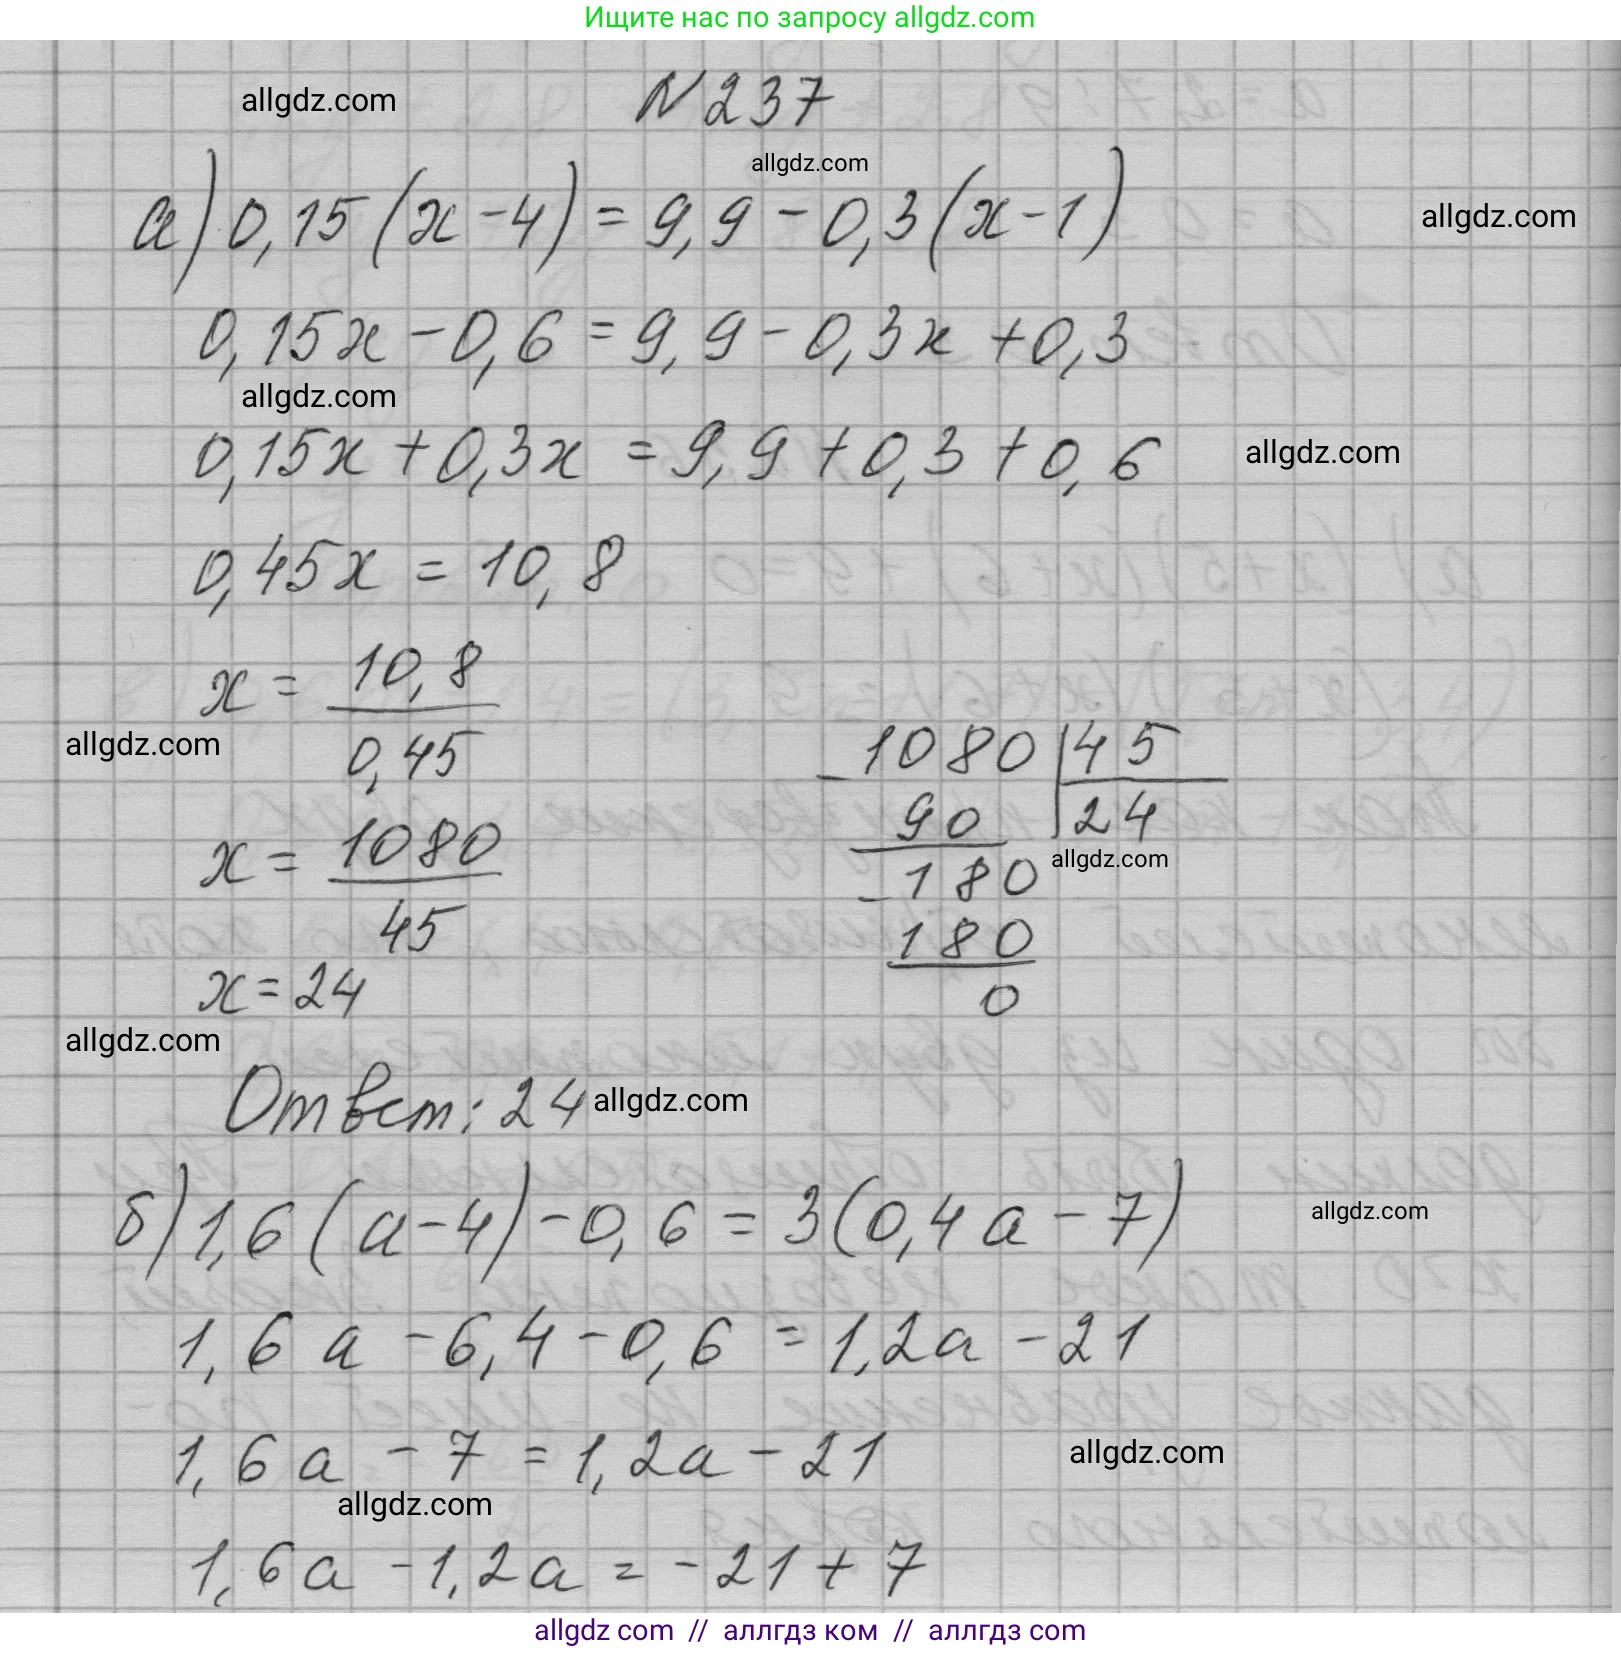 Ищите нас по запросу allgdz.com
allgdz.com
N 237
allgdz.com
а) 0,15(x-4) = 9,9 - 0,3(x-1)
allgdz.com
0,15x - 0,6 = 9,9 - 0,3x + 0,3
allgdz.com
0,15x + 0,3x = 9,9 + 0,3 + 0,6
allgdz.com
0,45x = 10,8
x = 10,8 / 0,45
allgdz.com
x = 1080 / 45
x = 24
1080 | 45
- 90 | 24
allgdz.com
- 180
180
0
allgdz.com
Ответ: 24
allgdz.com
б) 1,6(a-4) - 0,6 = 3(0,4a - 7)
allgdz.com
1,6a - 6,4 - 0,6 = 1,2a - 21
1,6a - 7 = 1,2a - 21
allgdz.com
allgdz.com
1,6a - 1,2a = -21 + 7
allgdz com // аллгдз ком // аллгдз com